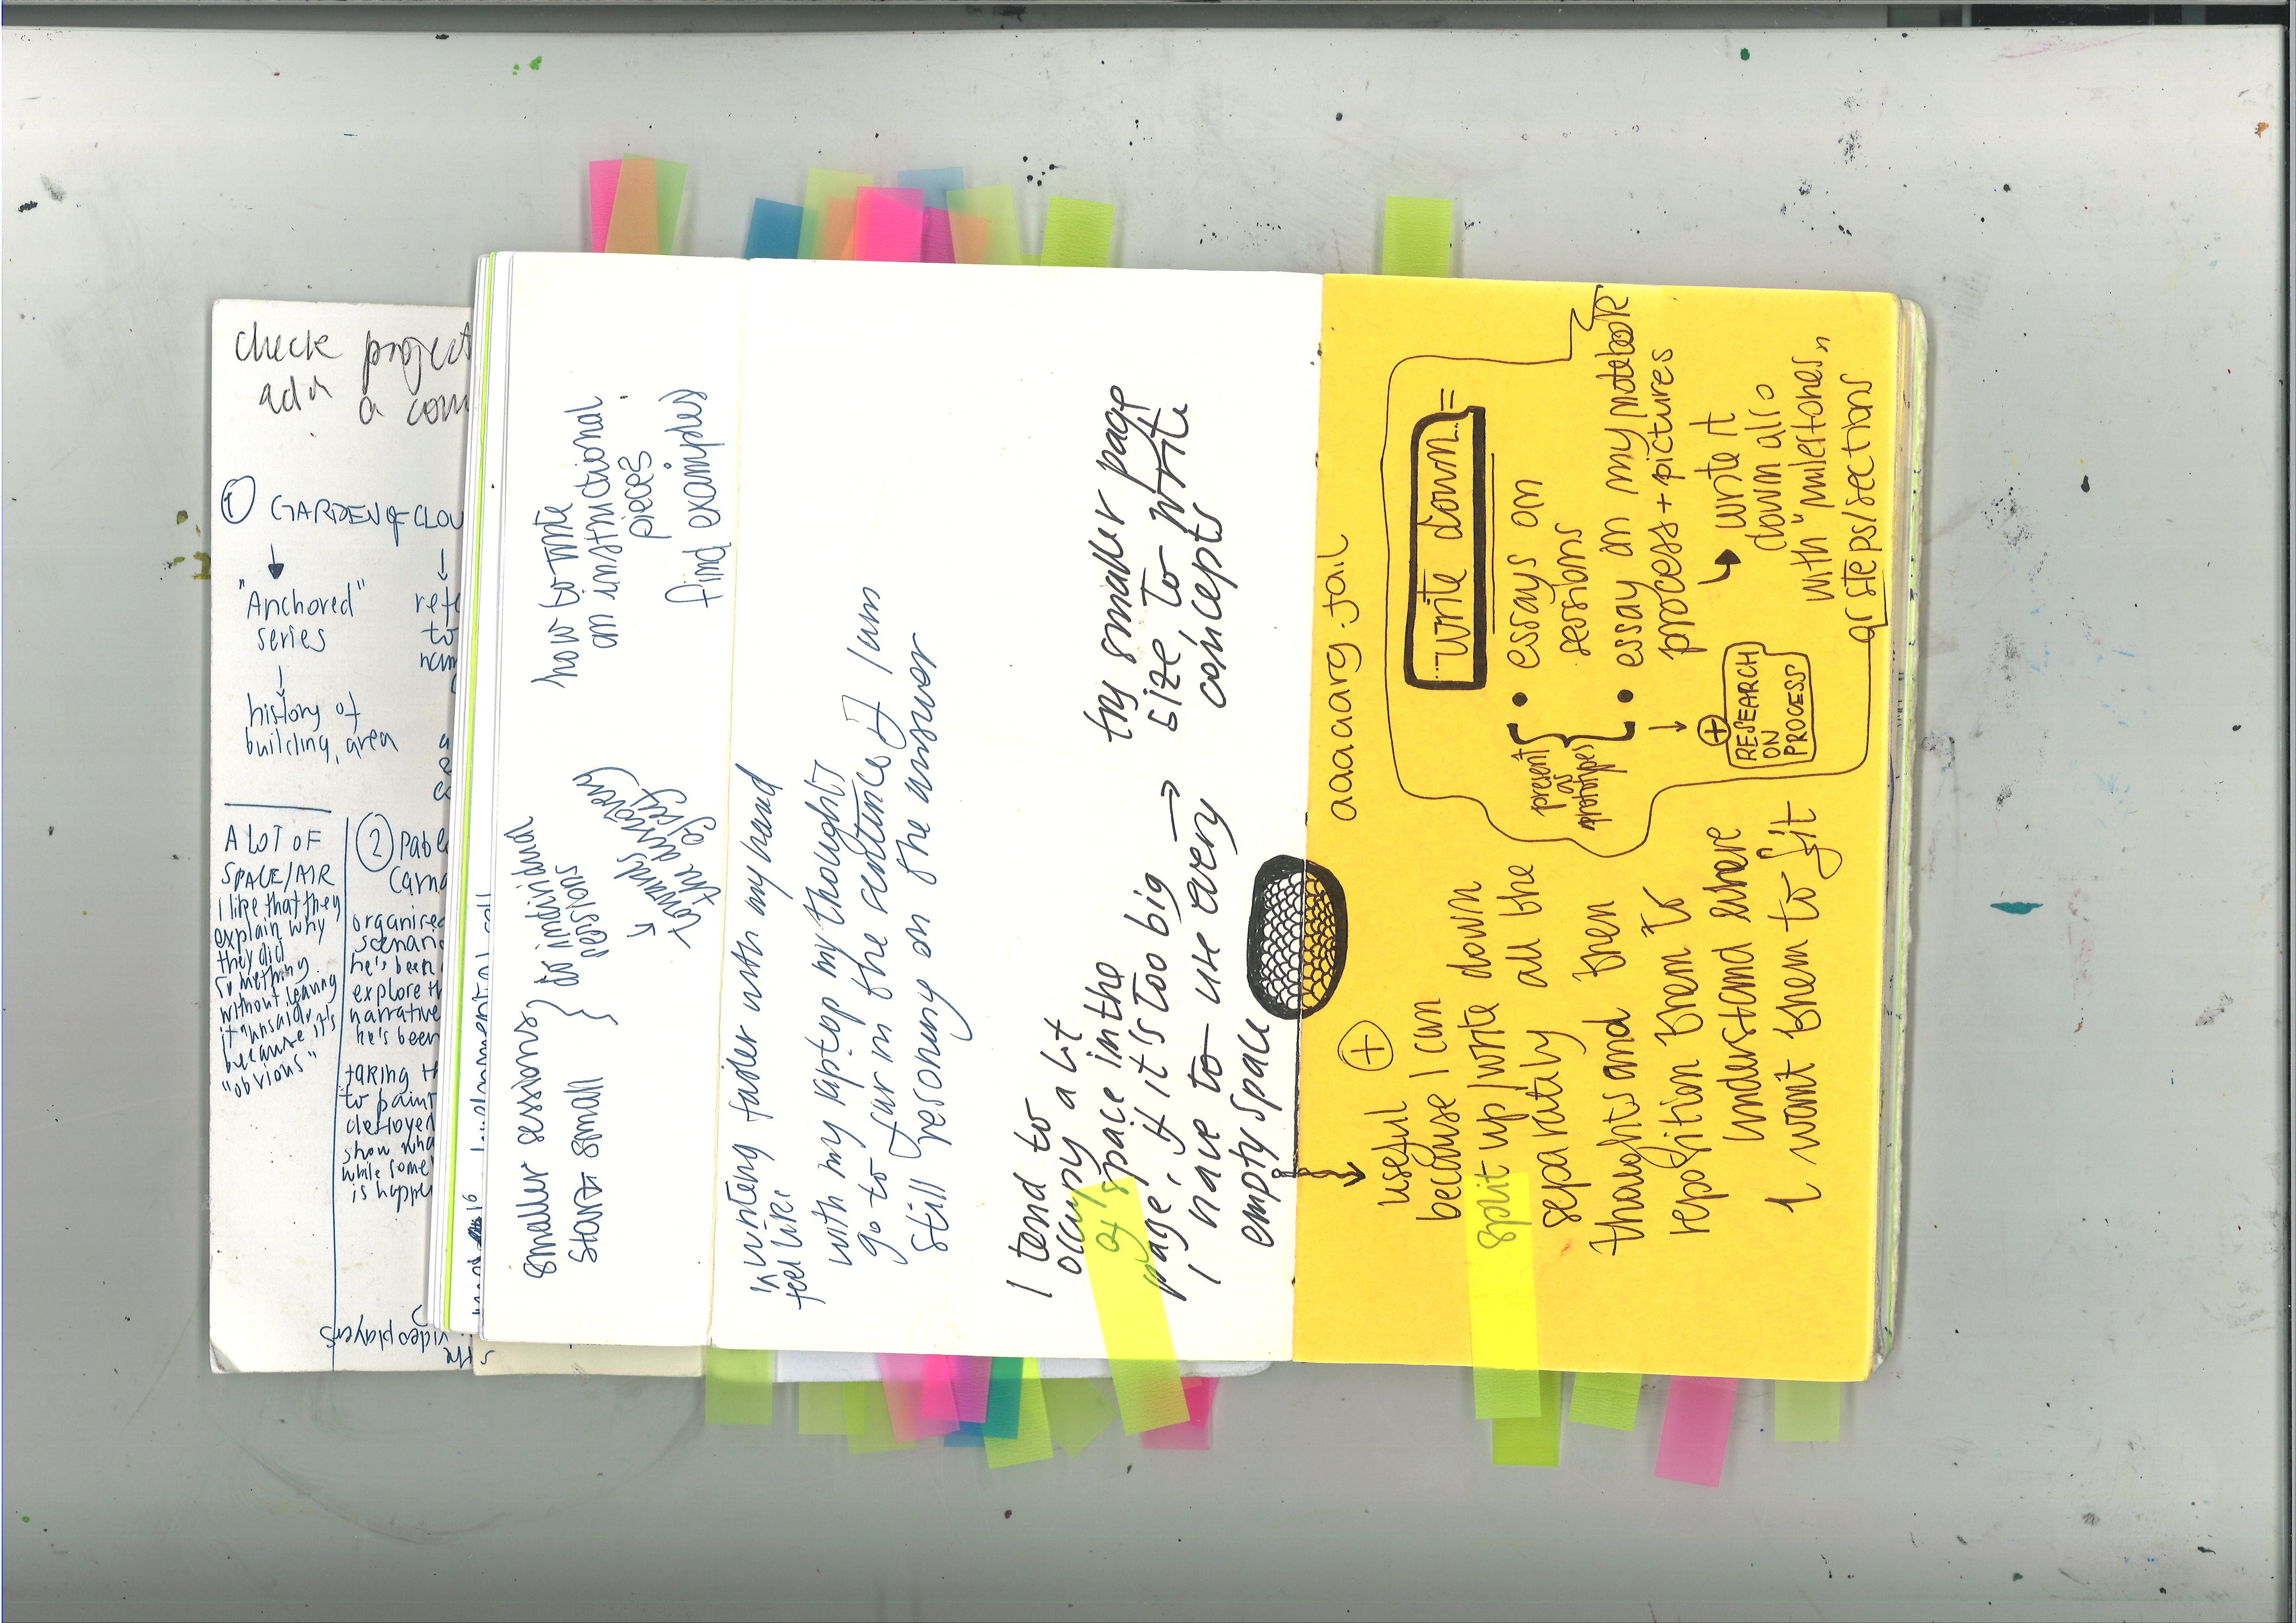 smaller sessions
START small
individual
sessions
how to write
an instructional
piece?
find examples
writing faster with my hand
feel like
with my laptop my thoughts
go to far in the sentence, I am
still resoning on the
I tend to
occupy a lot
of space in the
page, if it's too big →
I have to use every
empty space
try smaller page
size to write
concepts
aaaaarg.fail
+
useful
because I can
split up/write down
separately all the
thoughts and then
reposition them to
understand where
I want them to fit
write down =
present
as
prototypes
• essays on
sessions
• essay on my notebook
process + pictures
↓
+
RESEARCH
ON
PROCESS
write it
down also
with "milestones"
or steps/sections
s the
video players
check
ad n
project
a com
① GARDEN of CLOU
"Anchored"
series
↓
history of
building, area
A LOT OF
SPACE/AIR
I like that they
explain why
they did
something
without leaving
it unsaid, it's
because it's
"obvious"
②
organised
scenar
he's been
explore th
narrative
he's been
taking th
to paint
destroyed
show wha
while some
is happe